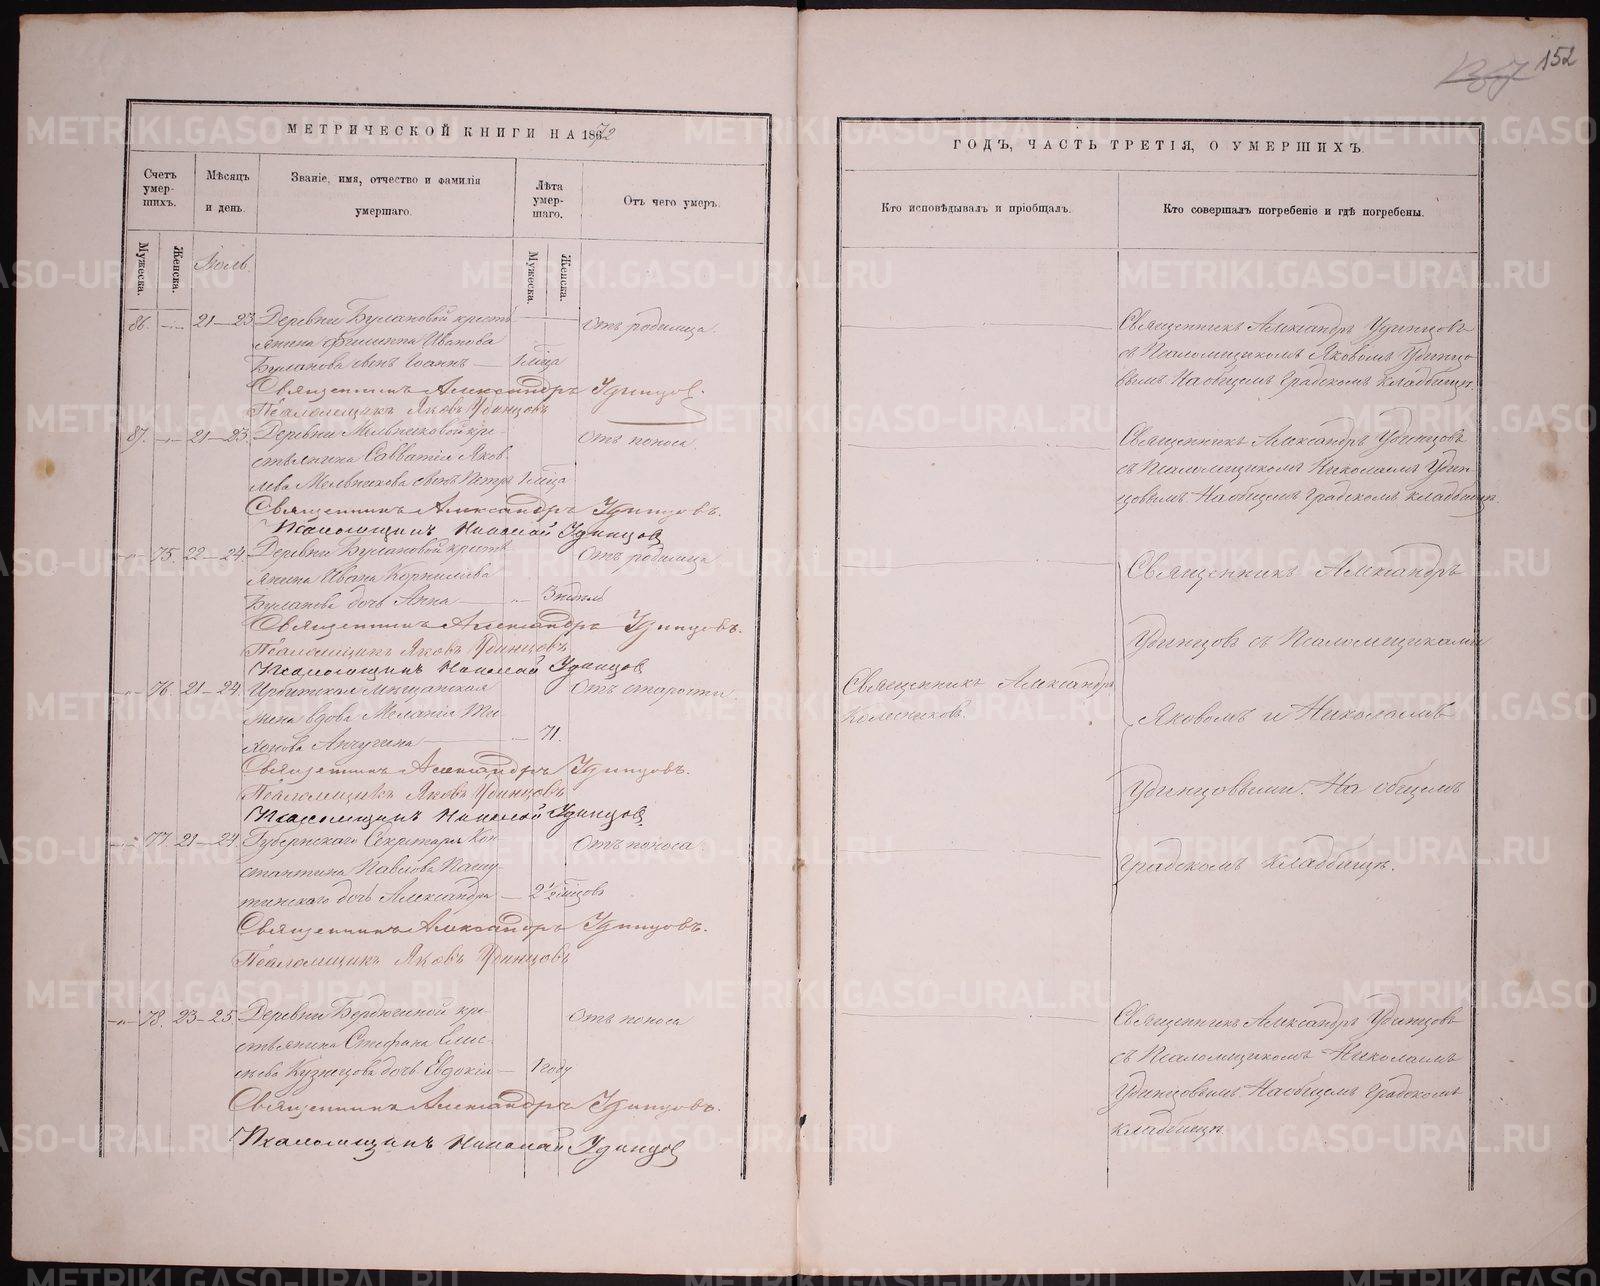 152
МЕТРИЧЕСКОЙ КНИГИ НА 1872
ГОДЪ, ЧАСТЬ ТРЕТІЯ, О УМЕРШИХЪ.
Счетъ умер-
шихъ.
Мужеска.
Женска.
Мѣсяцъ
и день.
Званіе, имя, отчество и фамилія
умершаго.
Лѣта
умер-
шаго.
Мужеска.
Женска.
Отъ чего умеръ.
Кто исповѣдывалъ и пріобщалъ.
Кто совершалъ погребеніе и гдѣ погребены.
Іюль.
86. 21—23 Деревни Булановой кресть
янина Филиппа Иванова
Буланова сынъ Іоаннъ — 1 мѣсяца
Отъ родимца
Священникъ Александръ Удинцовъ
съ Псаломщикомъ Яковомъ Удинцо
вымъ На общемъ Градскомъ кладбищѣ.
Священникъ Александръ Удинцовъ.
Псаломщикъ Яковъ Удинцовъ
87. 21—23. Деревни Мельниковой кре-
стьянина Савватія Яков-
лева Мельникова сынъ Петръ 1 мѣсяца
Отъ поноса
Священникъ Александръ Удинцовъ
съ Псаломщикомъ Николаемъ Удин-
цовымъ На общемъ Градскомъ кладбищѣ.
Священникъ Александръ Удинцовъ.
Псаломщикъ Николай Удинцов
75. 22—24. Деревни Булановой кресть
янина Ивана Корнилова
Буланова дочь Анна — 3 недѣль
Отъ родимца
Священникъ Александръ
Удинцовъ съ Псаломщиками
Яковомъ и Николаемъ
Удинцовыми. На общемъ
Градскомъ кладбищѣ.
Священникъ Александръ Удинцовъ.
Псаломщикъ Яковъ Удинцовъ
Псаломщикъ Николай Удинцов
76. 21—24. Ирбитская мѣщанская
жена вдова Меланія Ти-
хонова Анчугина — 71.
Отъ старости
Священникъ Александръ
Колесниковъ.
Священникъ Александръ Удинцовъ.
Псаломщикъ Яковъ Удинцовъ
Псаломщикъ Николай Удинцов
77. 21—24 Губернскаго Секретаря Кон-
стантина Павлова
дочь Александра — 2 1/2 мѣсяцовъ
Отъ поноса
Священникъ Александръ Удинцовъ.
Псаломщикъ Яковъ Удинцовъ
78. 23—25 Деревни Бердюгиной кре-
стьянина Стефана Елис-
ѣева Кузнецова дочь Евдокія — 1 году
Отъ поноса
Священникъ Александръ Удинцовъ
съ Псаломщикомъ Николаемъ
Удинцовымъ На общемъ Градскомъ
кладбищѣ.
Священникъ Александръ Удинцовъ.
Псаломщикъ Николай Удинцов
METRIKI.GASO-URAL.RU